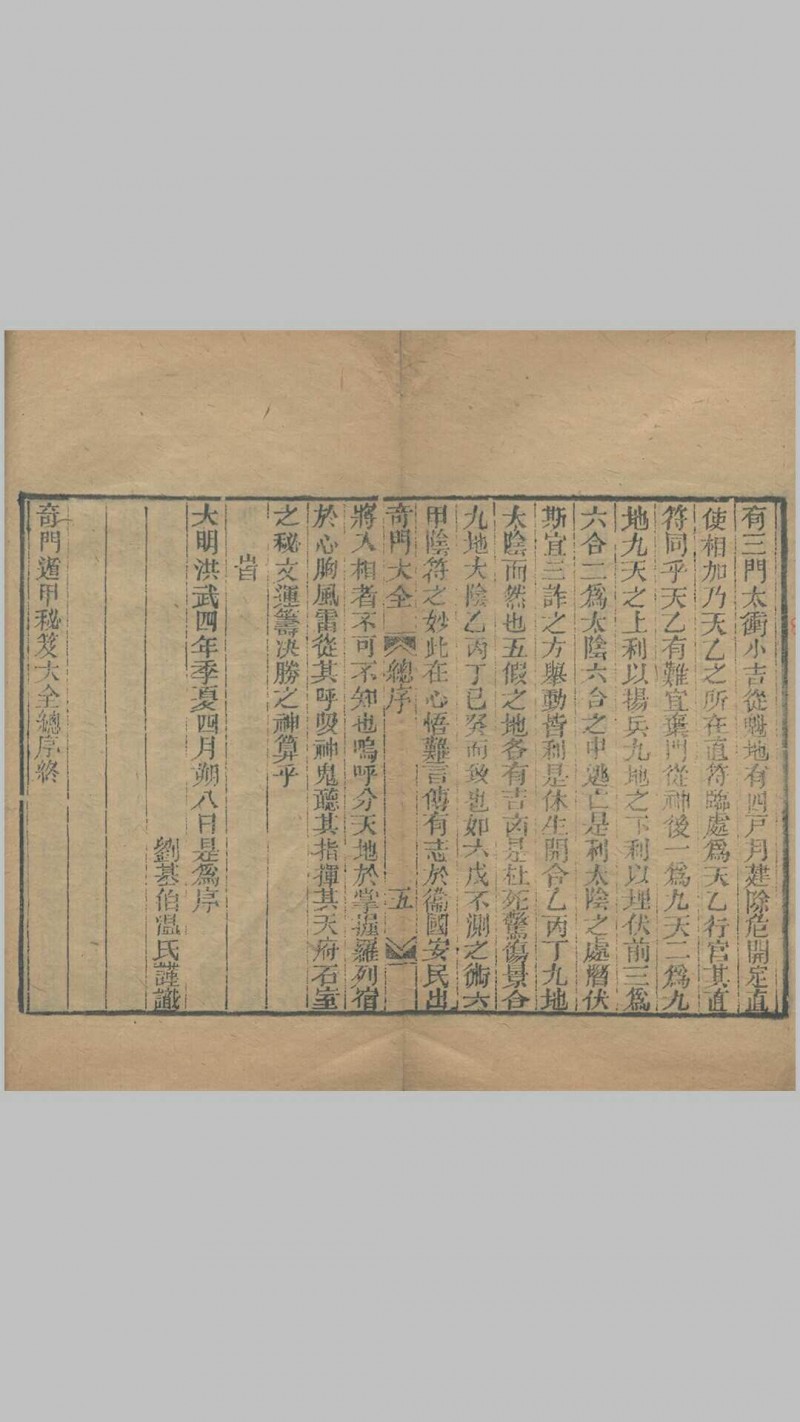 有三門太衝小吉從魁地有四戸月建除危開定直
使相加乃天乙之所在直符臨處爲天乙行宫其直
符同乎天乙有難宜棄門從神後一爲九天二爲九
地九天之上利以揚兵九地之下利以埋伏前三爲
六合二爲太陰六合之中逃亡是利太陰之處曆伏
斯宜三詐之方舉動皆利是休生開合乙丙丁九地
太陰而然也五假之地各有吉凶是杜死驚傷景合
九地太陰乙丙丁己癸而致也如六戊不測之術六
甲陰符之妙此在心悟難言傳有志於衞國安民出
奇門大全 總序 五
將入相者不可不知也嗚呼分天地於掌握羅列宿
於心胸風雷從其呼吸神鬼聽其指揮其天府石室
之秘文運籌决勝之神算乎
旹
大明洪武四年季夏四月朔八日是爲序
劉基伯温氏謹識
奇門遁甲秘笈大全總序終